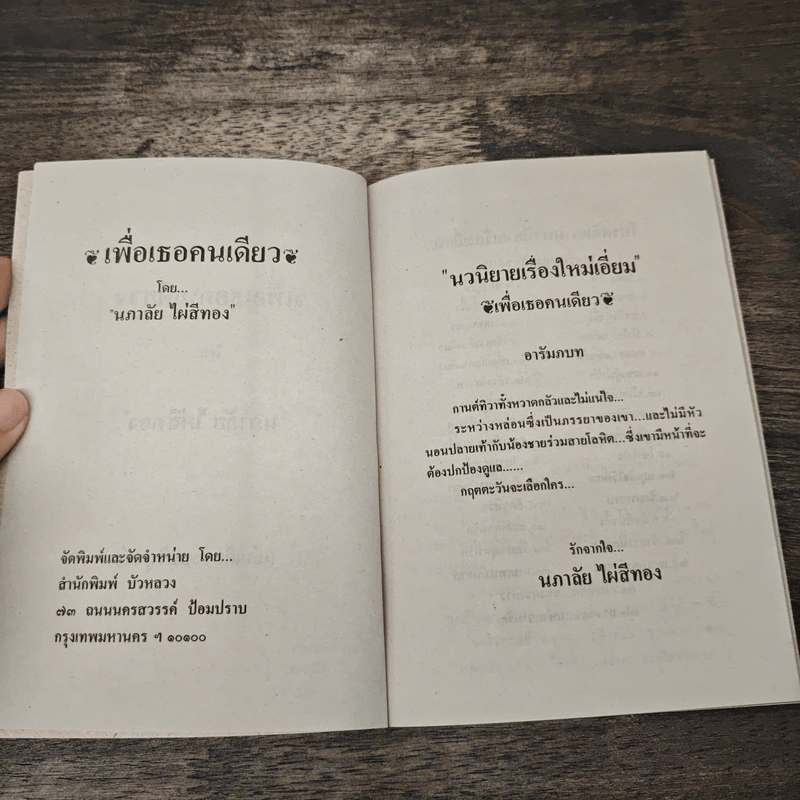 เพื่อเธอคนเดียว
โดย...
"นภาลัย ไผ่สีทอง"
จัดพิมพ์และจัดจำหน่าย โดย...
สำนักพิมพ์ บัวหลวง
๗๓ ถนนนครสวรรค์ ป้อมปราบ
กรุงเทพมหานคร ฯ ๑๐๑๐๐
"นวนิยายเรื่องใหม่เอี่ยม"
เพื่อเธอคนเดียว
อารัมภบท
กานต์ทิวาทั้งหวาดกลัวและไม่แน่ใจ...
ระหว่างหล่อนซึ่งเป็นภรรยาของเขา...และไม่มีหัว
นอนปลายเท้ากับน้องชายร่วมสายโลหิต...ซึ่งเขามีหน้าที่จะ
ต้องปกป้องดูแล......
กฤตตะวันจะเลือกใคร...
รักจากใจ...
นภาลัย ไผ่สีทอง